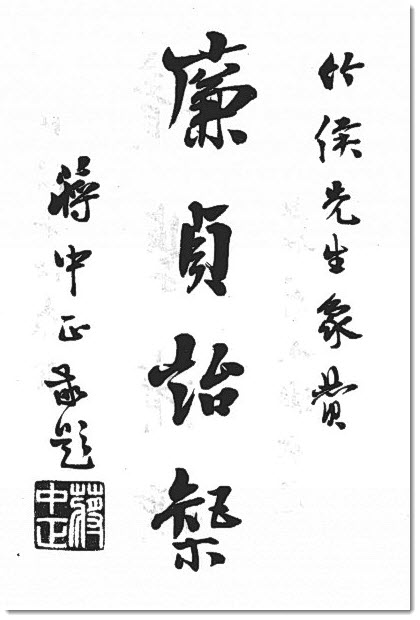 竹侯先生象贊
廉貞詒榘
蔣中正敬題
蔣中正